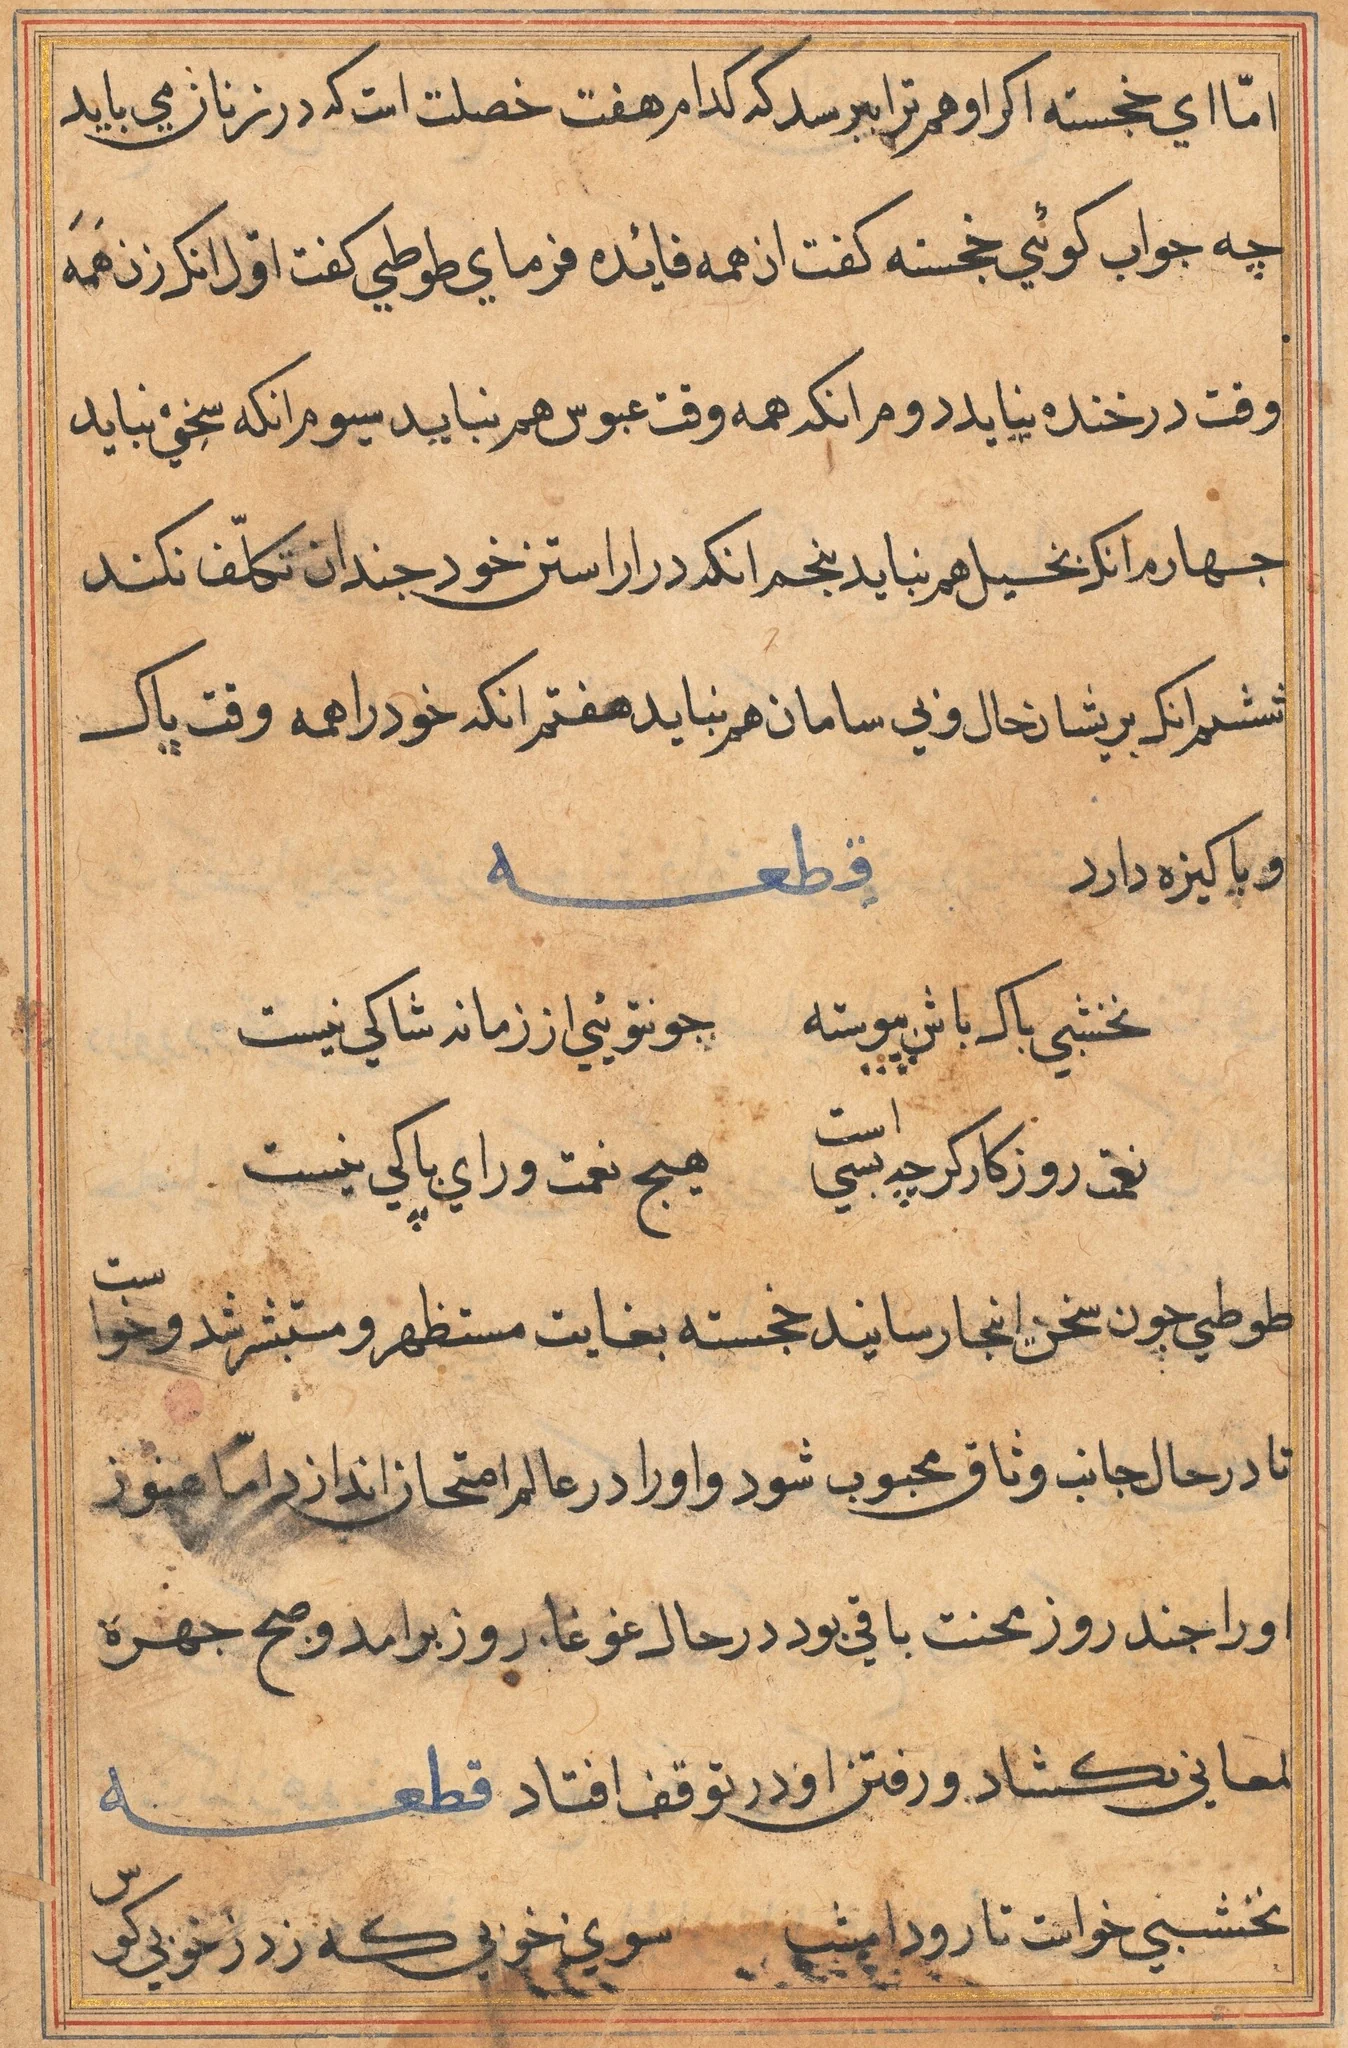 امّا اي خجسته اكر او هم ترا ببرسد كه كدام هفت خصلت است كه در زنان مي بايد
چه جواب كوئي خجسته كفت از همه فايده فرماي طوطي كفت اوّل انكه زن هَمَه
وقت در خنده نبايد دوم انكه همه وقت عبوس هم نبايد سيوم انكه سخي نبايد
جهارم انكه بخيل هم نبايد بنجم انكه در اراستن خود جندان تكلّف نكند
ششم انكه بريشان حال و بي سامان هم نبايد هفتم انكه خود را همه وقت پاك
و پاكيزه دارد قطعه
نخشبي باك باش پيوسته چون توئي از زمانه شاكي نيست
نعمت روزكار كرچه بسي است هيچ نعمت وراي پاكي نيست
طوطي چون سخن اينجا رسانيد خجسته بغايت مستظهر و مستبشر شد و خواست
تا در حال جانب وثاق محبوب شود و او را در عالم امتحان اندازد امّا هنوز
او را جند روز محنت باقي بود در حال غوغاء روز برامد و صبح جهره
لمعاني بكشاد و رفتن او در توقف افتاد قطعه
نخشبي خواست تا رود امشب سوي خوبي كه زد ز خوبي كوس